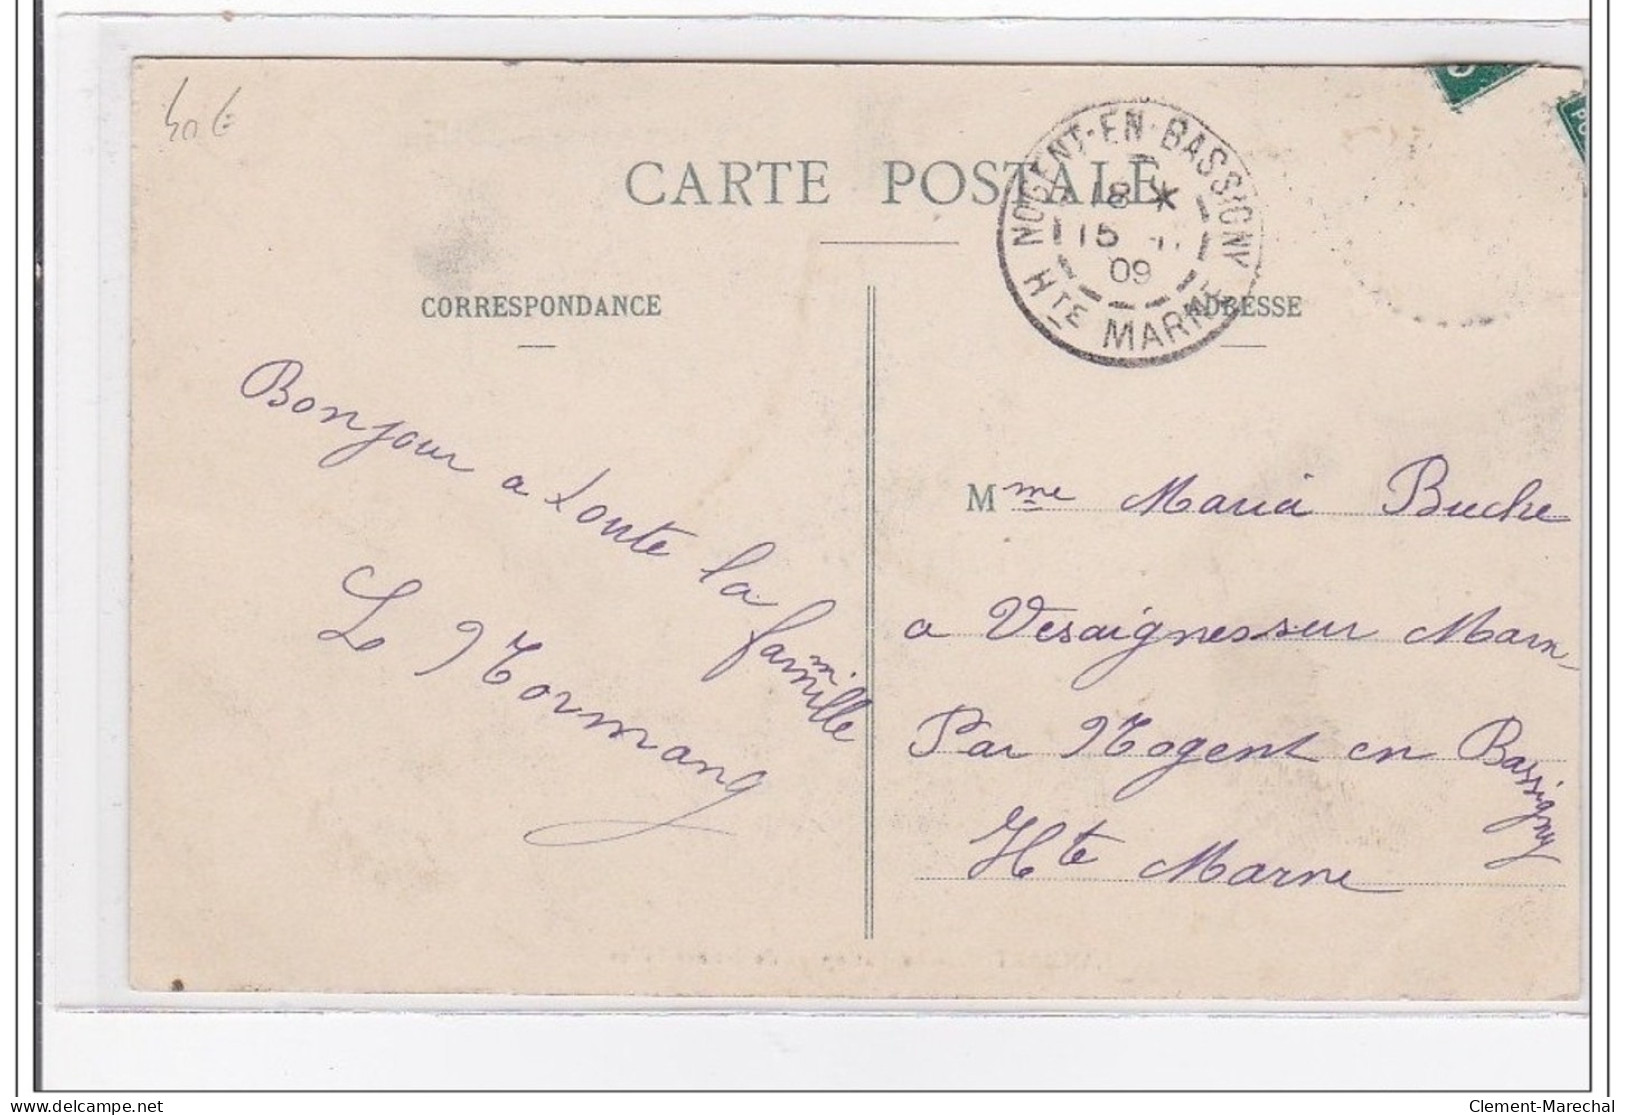 40 €
CARTE POSTALE
NOGENT-EN-BASSIGNY
18 *
15
09
HTE MARNE
CORRESPONDANCE
ADRESSE
Bonjour a toute la famille
Le Normand
Mme Maria Buche
a Vesaignessur Marn
Par Nogent en Bassigny
Hte Marne
Clement-Marechal